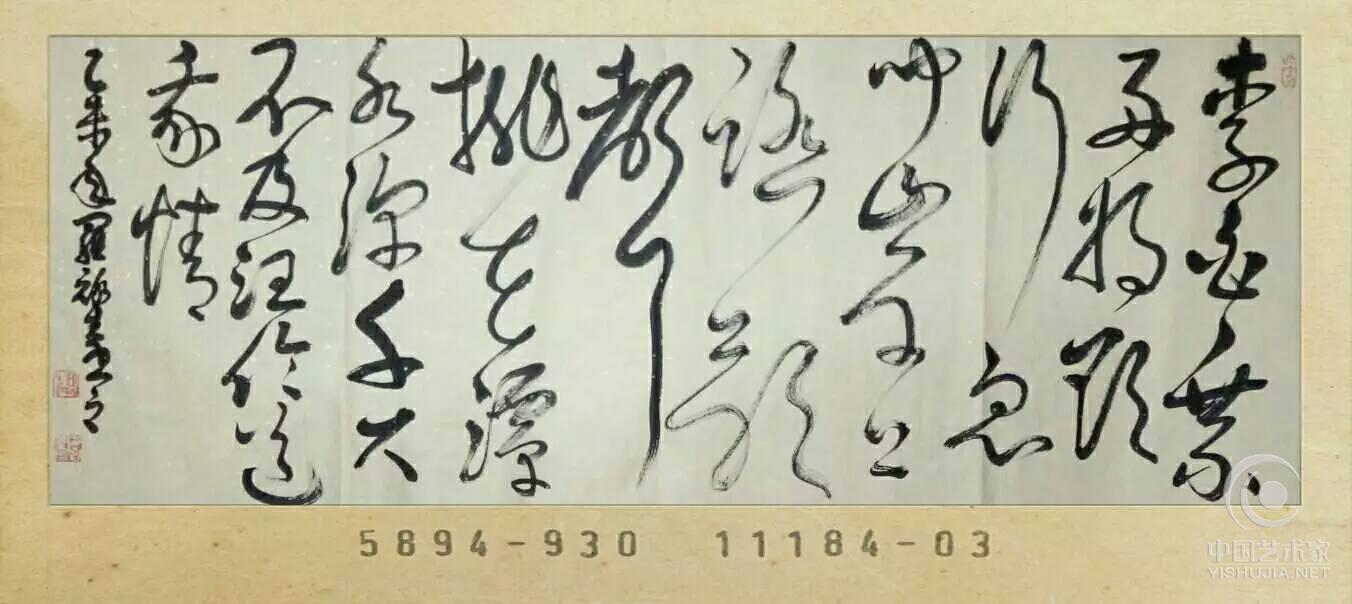 李白乘
舟将欲
行忽
闻岸上
踏歌
声
桃花潭
水深千尺
不及汪伦送
我情
乙未年羅
5894-930 11184-03
中国艺术家
YISHUJIA.NET